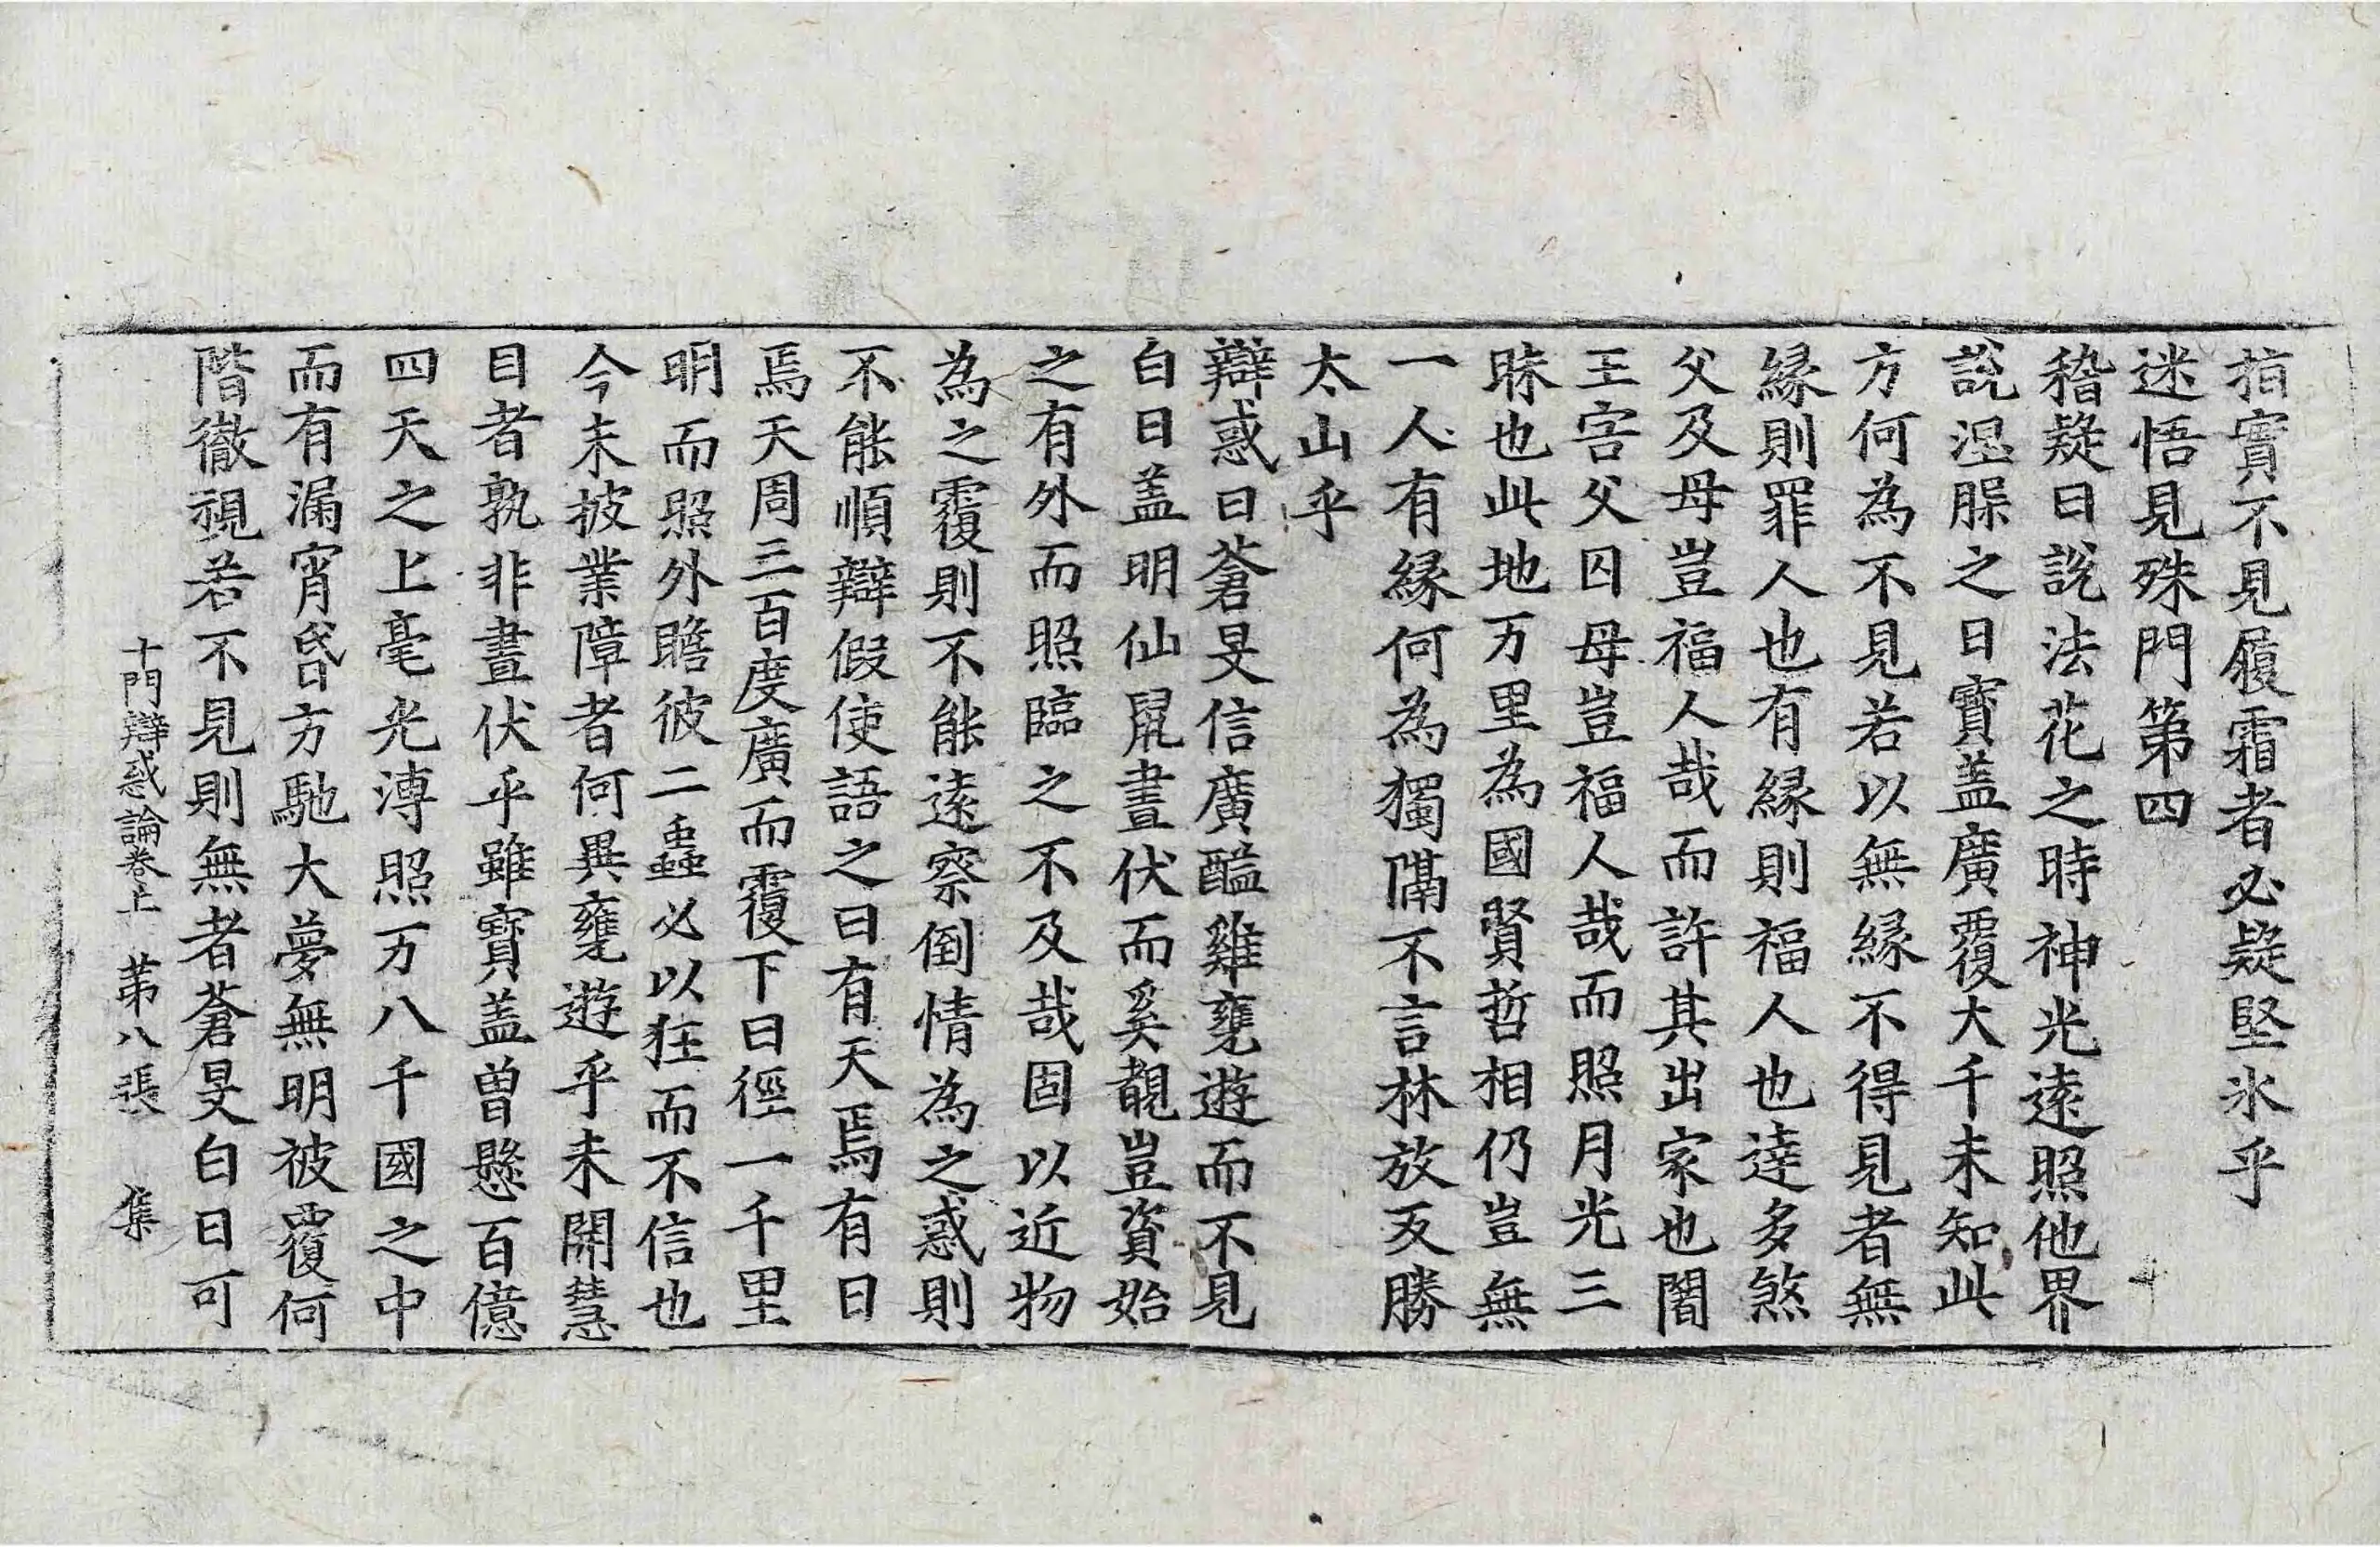 指實不見履霜者必疑堅氷乎
迷悟見殊門第四
稽疑曰說法花之時神光遠照他界
說涅脲之日寶盖廣覆大千未知此
方何為不見若以無緣不得見者無
緣則罪人也有緣則福人也達多煞
父及母豈福人哉而許其出家也闇
王害父囚母豈福人哉而照月光三
昧也此地万里為國賢哲相仍豈無
一人有緣何為獨隔不言林放反勝
太山乎
辯惑曰蒼旻信廣醯雞甕遊而不見
白日盖明仙鼠晝伏而奚覩豈資始
之有外而照臨之不及哉固以近物
為之覆則不能遠察倒情為之惑則
不能順辯假使語之曰有天焉有日
焉天周三百度廣而覆下日徑一千里
明而照外瞻彼二蟲必以狂而不信也
今未披業障者何異甕遊乎未開慧
目者孰非晝伏乎雖寶盖曾懸百億
四天之上毫光溥照万八千國之中
而有漏宵昬方馳大夢無明被覆何
階徹視若不見則無者蒼旻白日可
十門辯惑論卷上 第八張 集